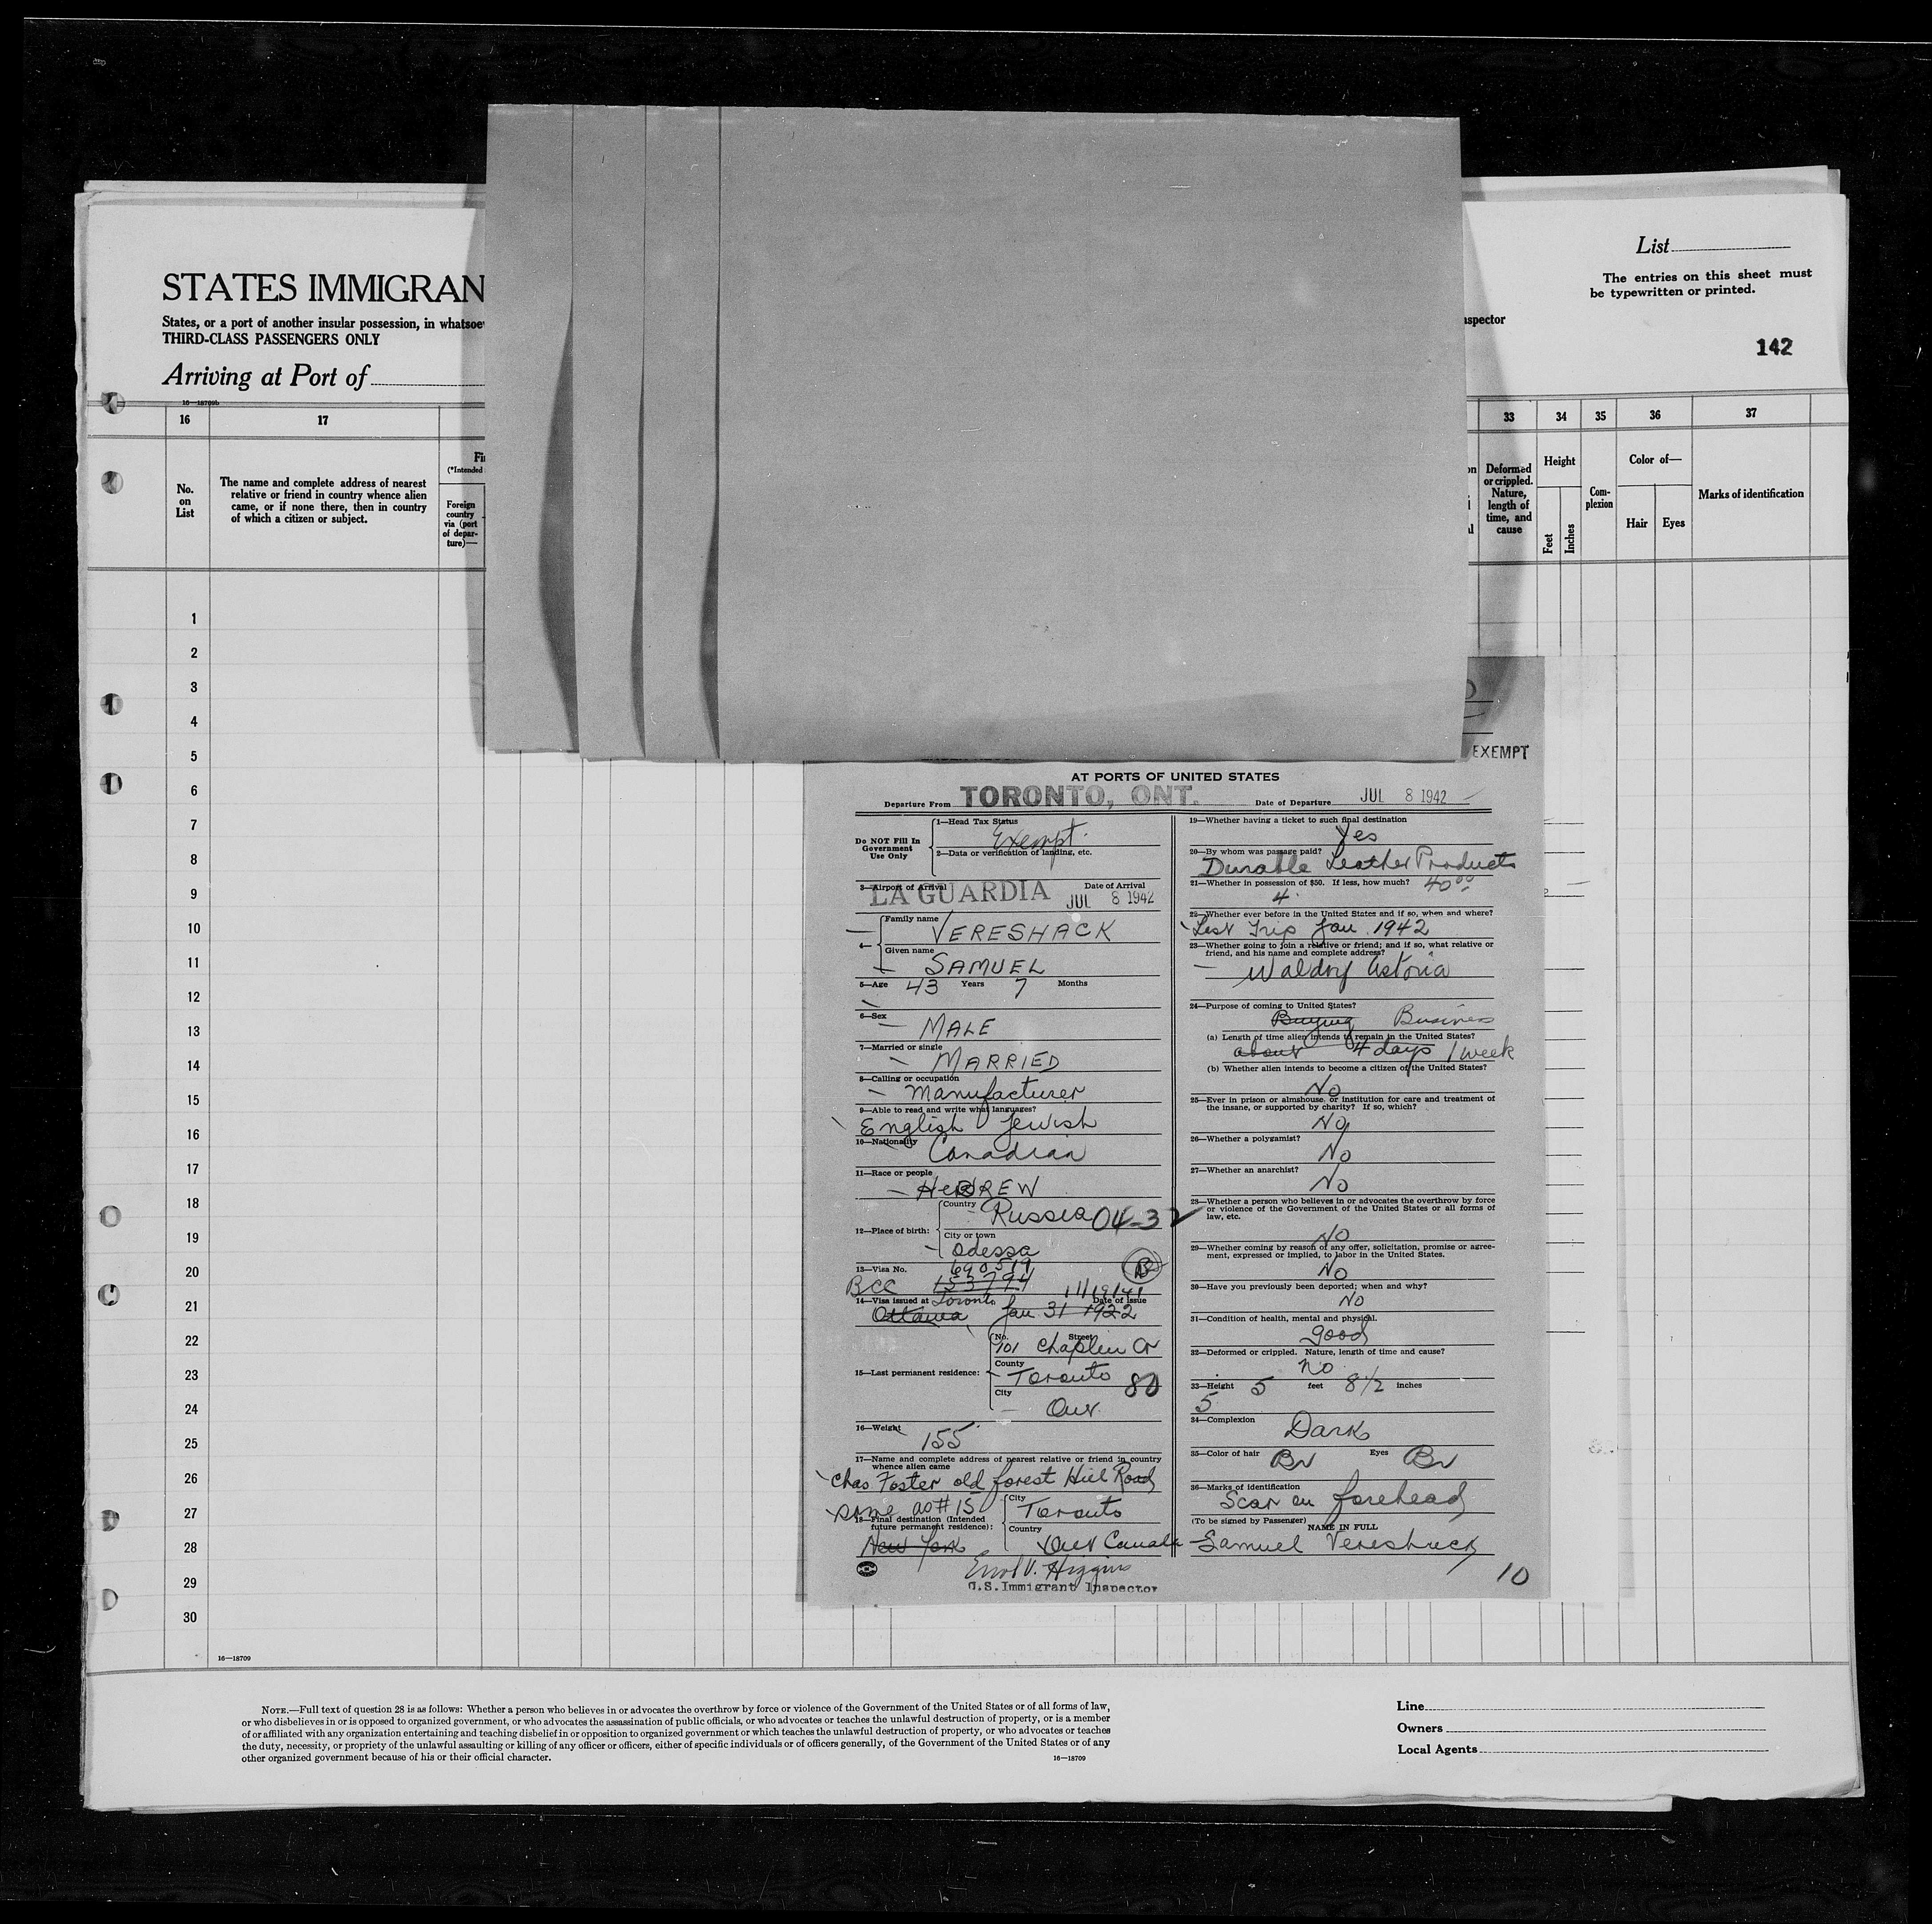 List
The entries on this sheet must
be typewritten or printed.
STATES IMMIGRAN
States, or a port of another insular possession, in whatsoe
THIRD-CLASS PASSENGERS ONLY
nspector
142
Arriving at Port of
16—18709b
16 17 33 34 35 36 37
No.
on
List
The name and complete address of nearest
relative or friend in country whence alien
came, or if none there, then in country
of which a citizen or subject.
(*Intended
Foreign
country
via (port
of depar-
ture)—
Deformed
or crippled.
Nature,
length of
time, and
cause
Height
Feet
Inches
Com-
plexion
Color of—
Hair Eyes
Marks of identification
1
2
3
4
5
6
7
8
9
10
11
12
13
14
15
16
17
18
19
20
21
22
23
24
25
26
27
28
29
30
16—18709
EXEMPT
AT PORTS OF UNITED STATES
Departure From TORONTO, ONT. Date of Departure JUL 8 1942
Do NOT Fill In
Government
Use Only
1—Head Tax Status
Exempt.
2—Data or verification of landing, etc.
3—Airport of Arrival Date of Arrival
LA GUARDIA JUL 8 1942
4—
Family name
VERESHACK
Given name
SAMUEL
5—Age 43 Years 7 Months
6—Sex
MALE
7—Married or single
MARRIED
8—Calling or occupation
Manufacturer
9—Able to read and write what languages?
English Jewish
10—Nationality
Canadian
11—Race or people
HEBREW
12—Place of birth:
Country
Russia 04-32
City or town
Odessa
13—Visa No. 690519
BCC 153794 B
14—Visa issued at Toronto 11/19/41 Date of Issue
Ottawa Jan 31 1922
15—Last permanent residence:
No. Street
701 Chaplin Cr
County
Toronto 80
City
Ont.
16—Weight
155
17—Name and complete address of nearest relative or friend in country
whence alien came
Chas Foster old forest Hill Road
same as #15
18—Final destination (Intended
future permanent residence):
New York
City
Toronto
Country
Ont Canada
Errol V. Higgins
U.S. Immigrant Inspector
19—Whether having a ticket to such final destination
Yes
20—By whom was passage paid?
Durable Leather Products
21—Whether in possession of $50. If less, how much? 40.00
4
22—Whether ever before in the United States and if so, when and where?
Last Trip Jan. 1942
23—Whether going to join a relative or friend; and if so, what relative or
friend, and his name and complete address?
Waldrof Astoria
24—Purpose of coming to United States?
Buying Business
(a) Length of time alien intends to remain in the United States?
about 4 days 1 week
(b) Whether alien intends to become a citizen of the United States?
No
25—Ever in prison or almshouse, or institution for care and treatment of
the insane, or supported by charity? If so, which?
No
26—Whether a polygamist?
No
27—Whether an anarchist?
No
28—Whether a person who believes in or advocates the overthrow by force
or violence of the Government of the United States or all forms of
law, etc.
NO
29—Whether coming by reason of any offer, solicitation, promise or agree-
ment, expressed or implied, to labor in the United States.
No
30—Have you previously been deported; when and why?
No
31—Condition of health, mental and physical.
good
32—Deformed or crippled. Nature, length of time and cause?
no
33—Height 5 feet 8 1/2 inches
5
34—Complexion
Dark
35—Color of hair Br Eyes Br
36—Marks of identification
Scar on forehead
(To be signed by Passenger)
NAME IN FULL
Samuel Vereshack
10
NOTE.—Full text of question 28 is as follows: Whether a person who believes in or advocates the overthrow by force or violence of the Government of the United States or of all forms of law,
or who disbelieves in or is opposed to organized government, or who advocates the assassination of public officials, or who advocates or teaches the unlawful destruction of property, or is a member
of or affiliated with any organization entertaining and teaching disbelief in or opposition to organized government or which teaches the unlawful destruction of property, or who advocates or teaches
the duty, necessity, or propriety of the unlawful assaulting or killing of any officer or officers, either of specific individuals or of officers generally, of the Government of the United States or of any
other organized government because of his or their official character.
16—18709
Line
Owners
Local Agents